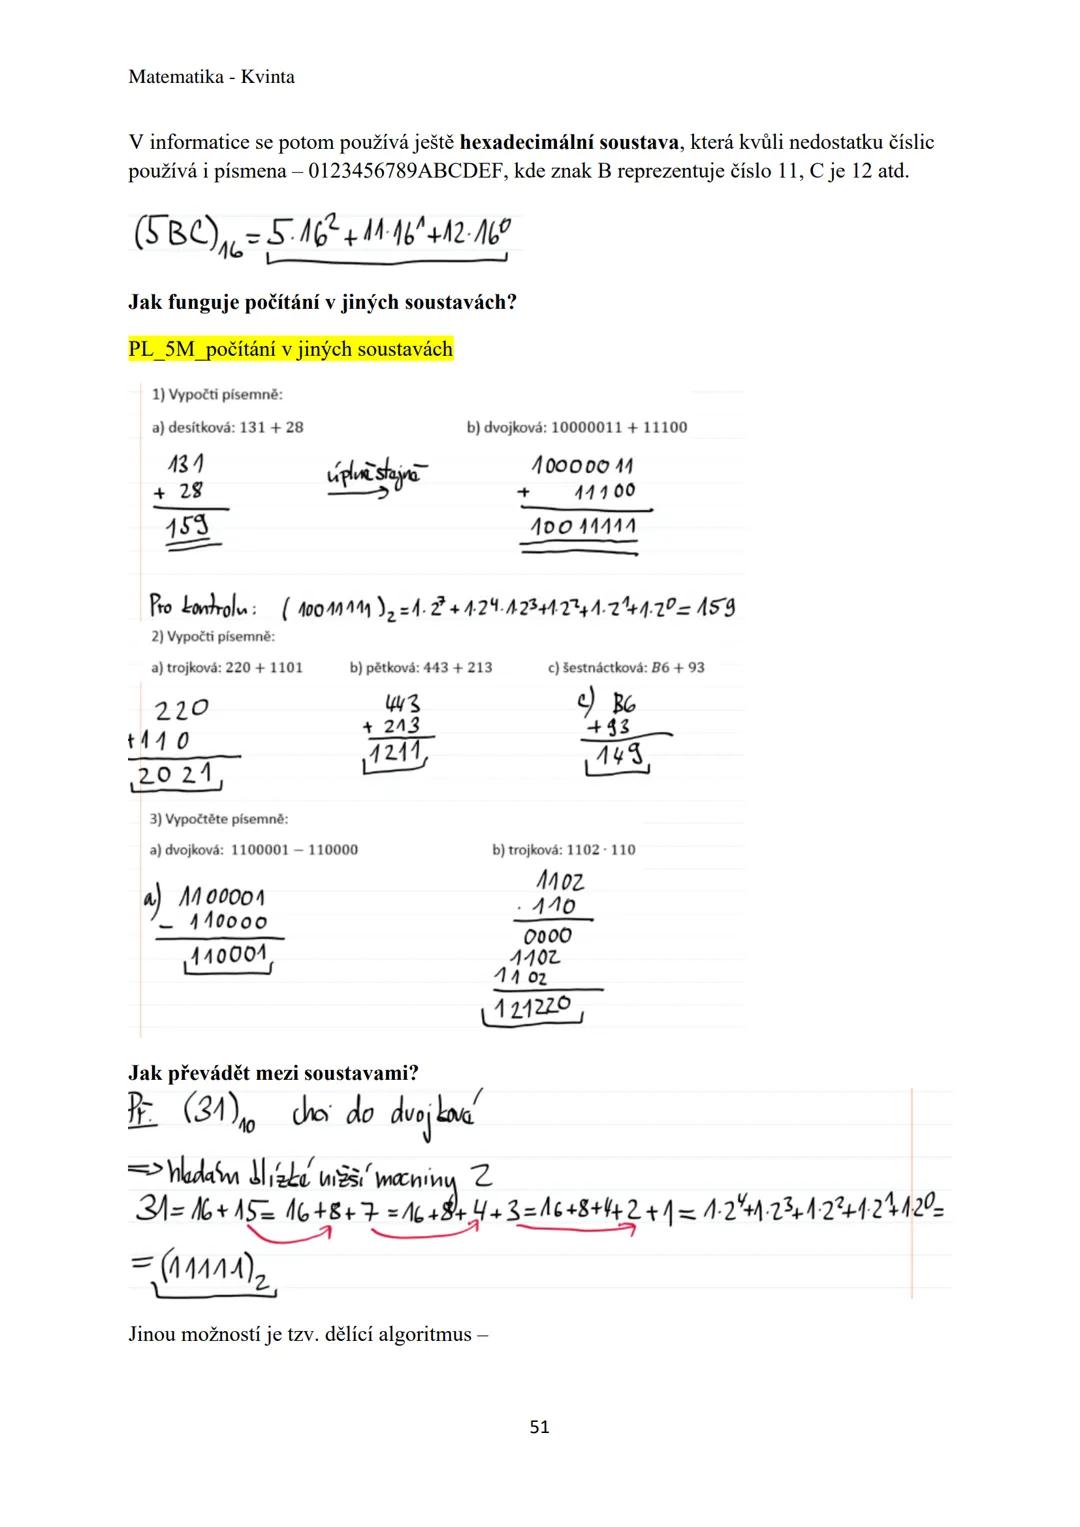 Matematika - Kvinta
V informatice se potom používá ještě hexadecimální soustava, která kvůli nedostatku číslic
používá i písmena – 0123456789ABCDEF, kde znak B reprezentuje číslo 11, C je 12 atd.
(5BC)₁₆ = 5·16² + 11·16¹ + 12·16⁰
Jak funguje počítání v jiných soustavách?
PL_5M_počítání v jiných soustavách
1) Vypočti písemně:
a) desítková: 131 + 28 b) dvojková: 10000011 + 11100
131 úplně stejně 10000011
+ 28 + 11100
159 10011111
Pro kontrolu: (10011111)₂ = 1·2⁷ + 1·2⁴·1·2³+1·2²+1·2¹+1·2⁰ = 159
2) Vypočti písemně:
a) trojková: 220 + 1101 b) pětková: 443 + 213 c) šestnáctková: B6 + 93
220 443 c) B6
+110 + 213 +93
2021 1211 149
3) Vypočtěte písemně:
a) dvojková: 1100001 − 110000 b) trojková: 1102 · 110
a) 1100001 1102
− 110000 · 110
110001 0000
1102
1102
121220
Jak převádět mezi soustavami?
Př. (31)₁₀ chci do dvojkové
=> hledám blízké nižší mocniny 2
31 = 16 + 15 = 16 + 8 + 7 = 16 + 8 + 4 + 3 = 16 + 8 + 4 + 2 + 1 = 1·2⁴+1·2³+1·2²+1·2¹+1·2⁰ =
= (11111)₂
Jinou možností je tzv. dělící algoritmus –
51